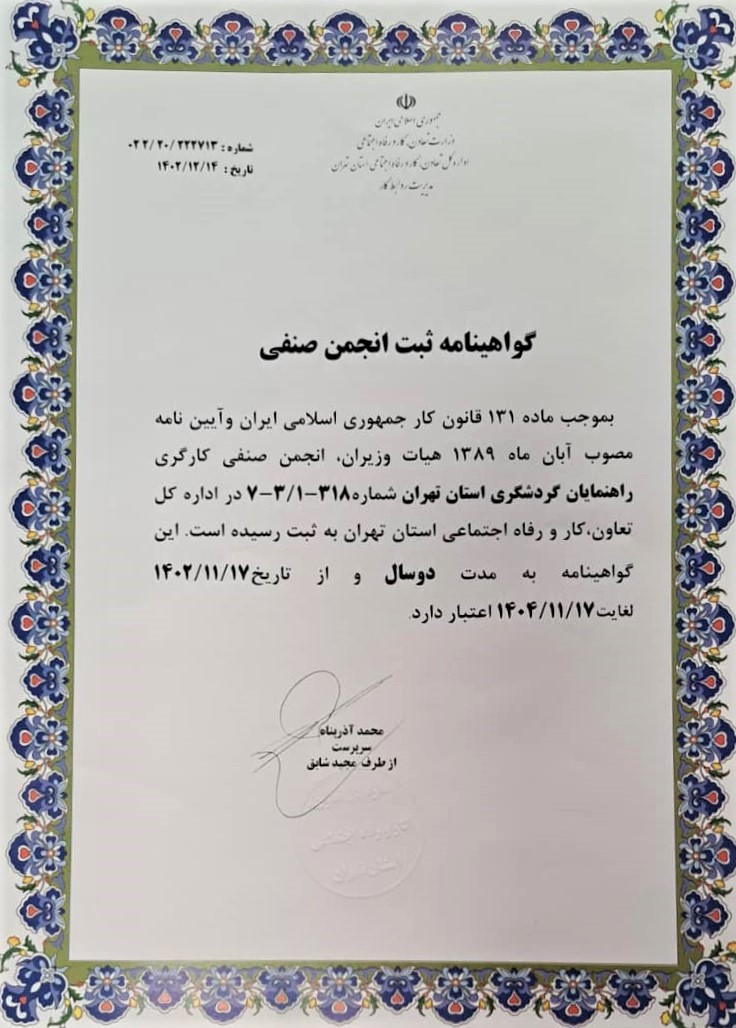 جمهوری اسلامی ایران
وزارت تعاون، کار و رفاه اجتماعی
اداره کل تعاون، کار و رفاه اجتماعی استان تهران
مدیریت روابط کار
شماره : ۰۲۲/۲۰/۲۲۲۷۱۳
تاریخ : ۱۴۰۲/۱۲/۱۴
گواهینامه ثبت انجمن صنفی
بموجب ماده ۱۳۱ قانون کار جمهوری اسلامی ایران وآیین نامه
مصوب آبان ماه ۱۳۸۹ هیات وزیران، انجمن صنفی کارگری
راهنمایان گردشگری استان تهران شماره۳۱۸-۳/۱-۷ در اداره کل
تعاون،کار و رفاه اجتماعی استان تهران به ثبت رسیده است. این
گواهینامه به مدت دوسال و از تاریخ۱۴۰۲/۱۱/۱۷
لغایت۱۴۰۴/۱۱/۱۷ اعتبار دارد.
محمد آذرپناه
سرپرست
از طرف مجید شایق